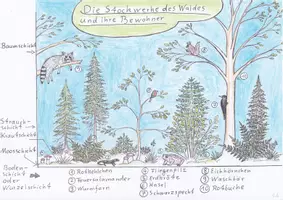 Die Stockwerke des Waldes
und ihre Bewohner
Baumschicht
Strauch-
schicht
Krautschicht
Moosschicht
Boden-
schicht
oder
Wurzelschicht
1 Rotkehlchen
2 Feuersalamander
3 Wurmfarn
4 Fliegenpilz
5 Erdkröte
6 Hasel
7 Schwarzspecht
8 Eichhörnchen
9 Waschbär
10 Rotbuche